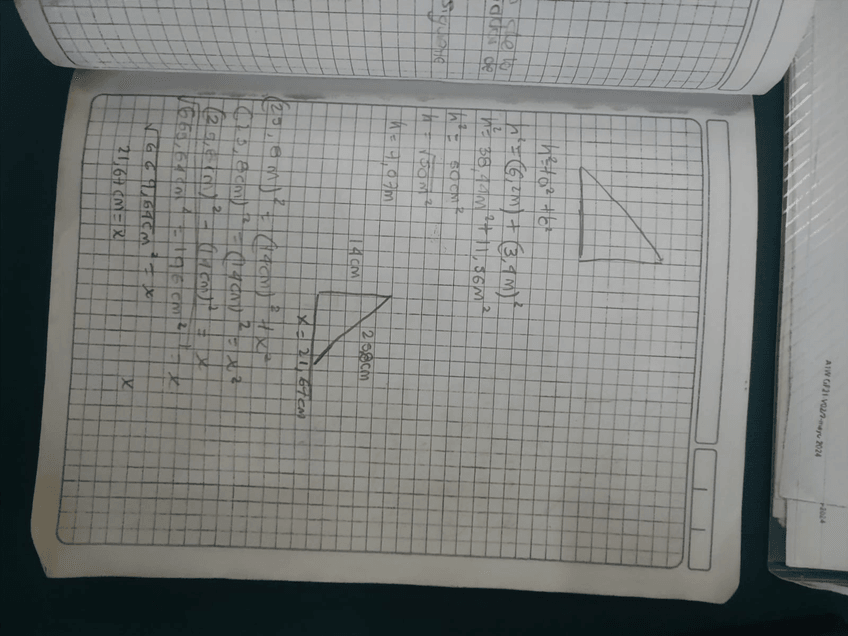 h²=a²+b²
h²=(6,2m)+(3,4m)²
h²=38,44m²+11,56m²
h²=50cm²
h=√50m²
h=7,07m
14cm
258cm
x=21,67cm
(25,8m)²=(14cm)²+x²
(25,8cm)²=(14cm)²=x²
(25,8cm)²-(14cm)²=x
√665,64cm⁴=196cm²=x
√469,64cm²=x
21,67cm=x
x